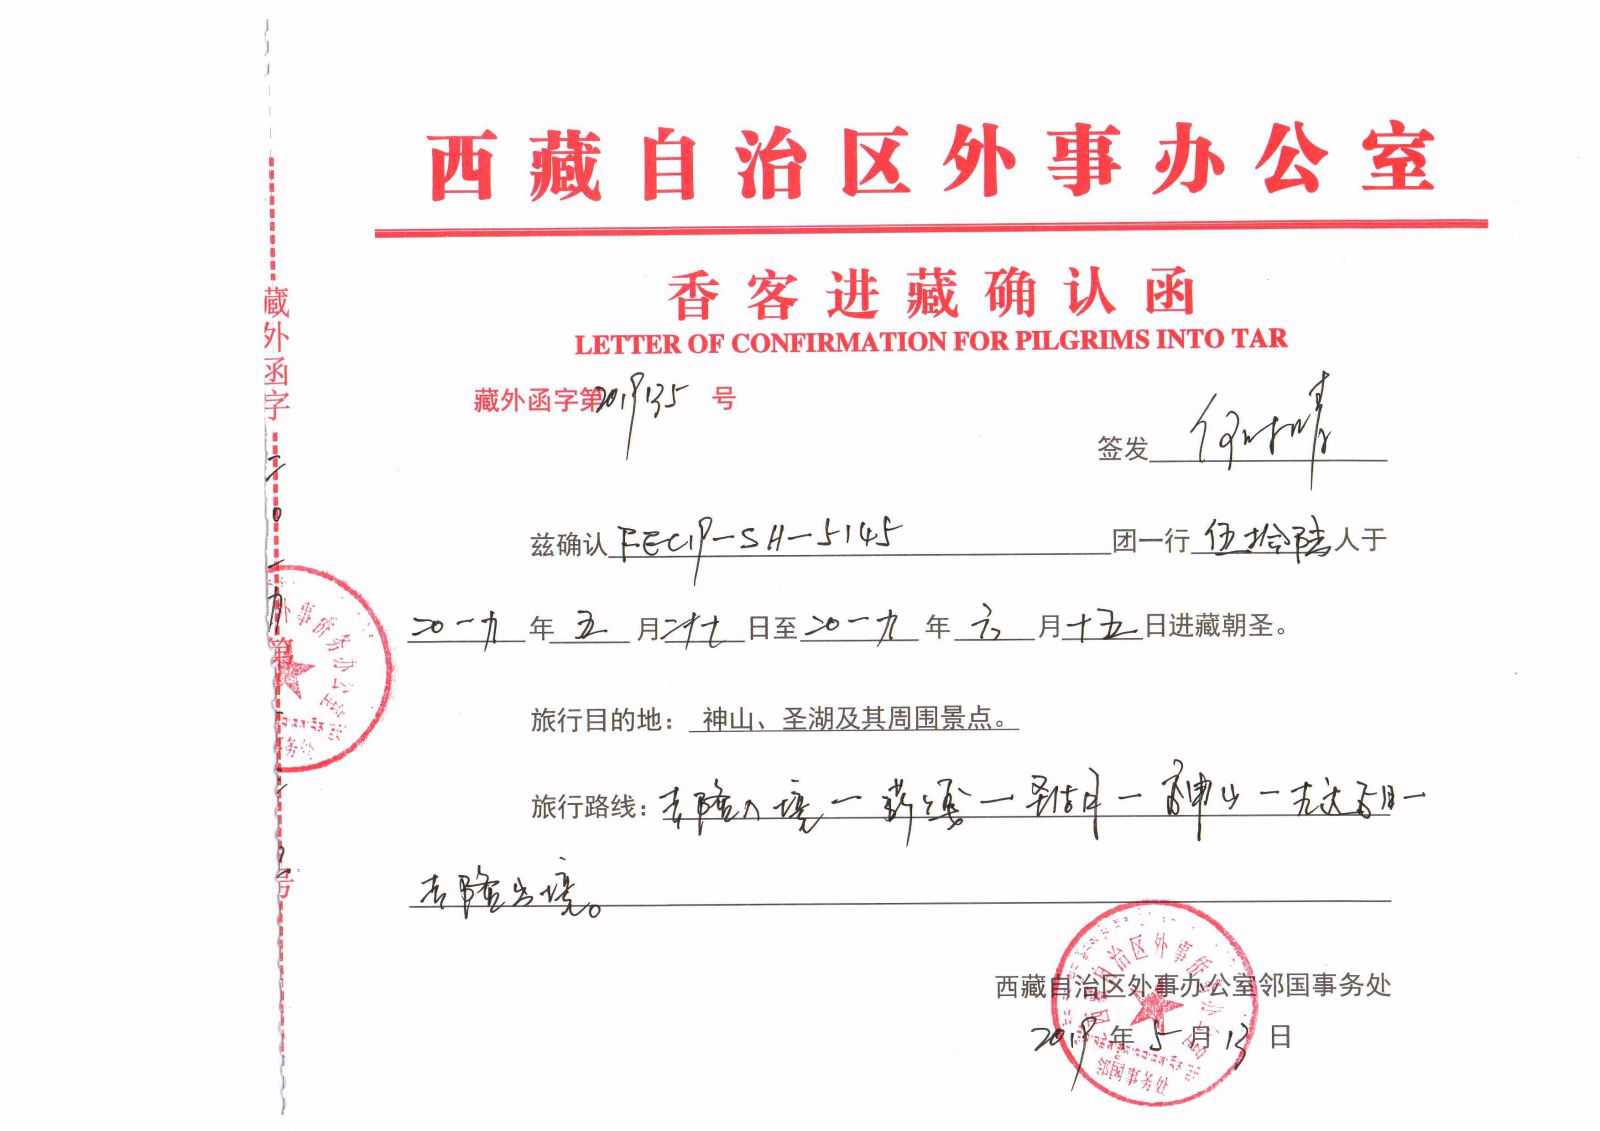 西藏自治区外事办公室
香客进藏确认函
LETTER OF CONFIRMATION FOR PILGRIMS INTO TAR
藏外函字第2019135号
签发
兹确认FEC19-SH-5145团一行伍拾陆人于
二〇一九年五月二十七日至二〇一九年六月十五日进藏朝圣。
旅行目的地：神山、圣湖及其周围景点。
旅行路线：吉隆入境—萨嘎—圣湖—神山—
吉隆出境。
西藏自治区外事办公室邻国事务处
2019年5月13日
藏外函字二〇一九第号
西藏自治区外事侨务办公室
外事侨务办公室